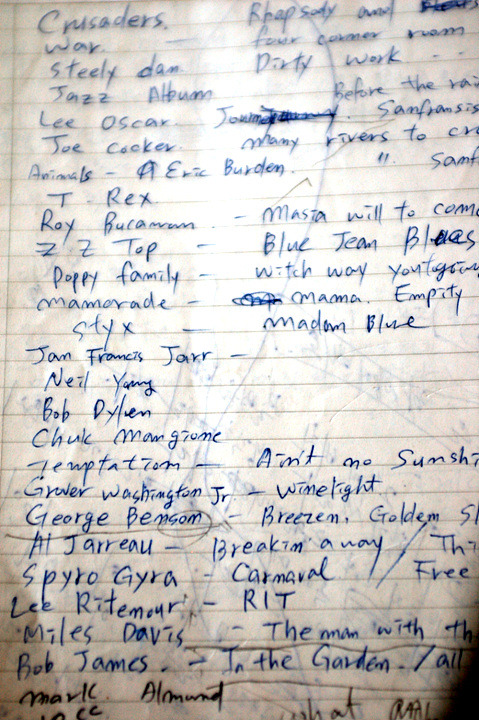 Crusaders. Rhapsody and Blues
War. — four corner room
Steely dan. Dirty work
Jazz Album Before the rai
Lee Oscar. Sanfransis
Joe Cocker. Many rivers to cro
Animals - Eric Burden. " Sanf
T. Rex
Roy Bucanan. - Masia will to come
Z. Z Top - Blue Jean Blues
Poppy family - witch way you going
Mamorade - mama. Empity
Styx — Madam Blue
Jan Francis Jarr -
Neil Young
Bob Dylen
Chuk Mangione
Temptation - Ain't no Sunshi
Grover Washington Jr. - Winelight
George Benson - Breezen, Golden Sl
Al Jarreau - Breakin' away / Thi
Spyro Gyra - Carnaval / Free
Lee Ritenour - RIT
Miles Davis - The man with th
Bob James. - In the Garden. / all
Mark Almond
10cc what